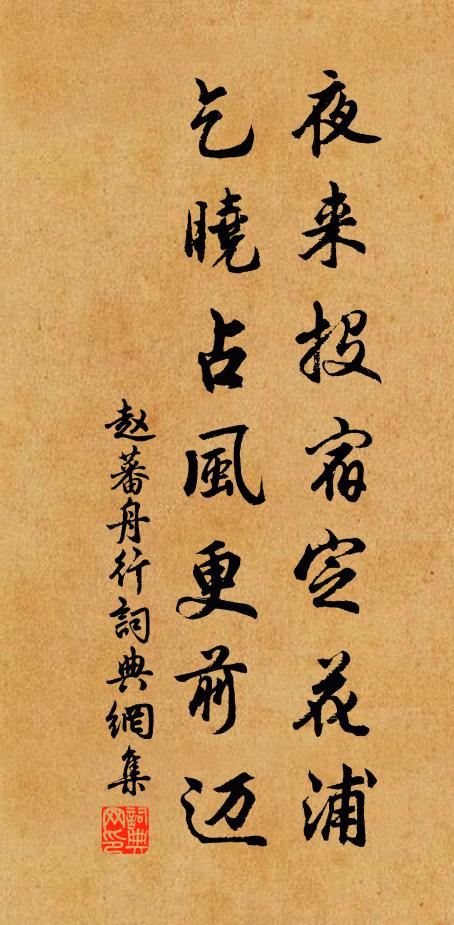 夜来投宿定花浦
乞曉占風更前迈
赵蕃舟行詞典網集
詞典网印